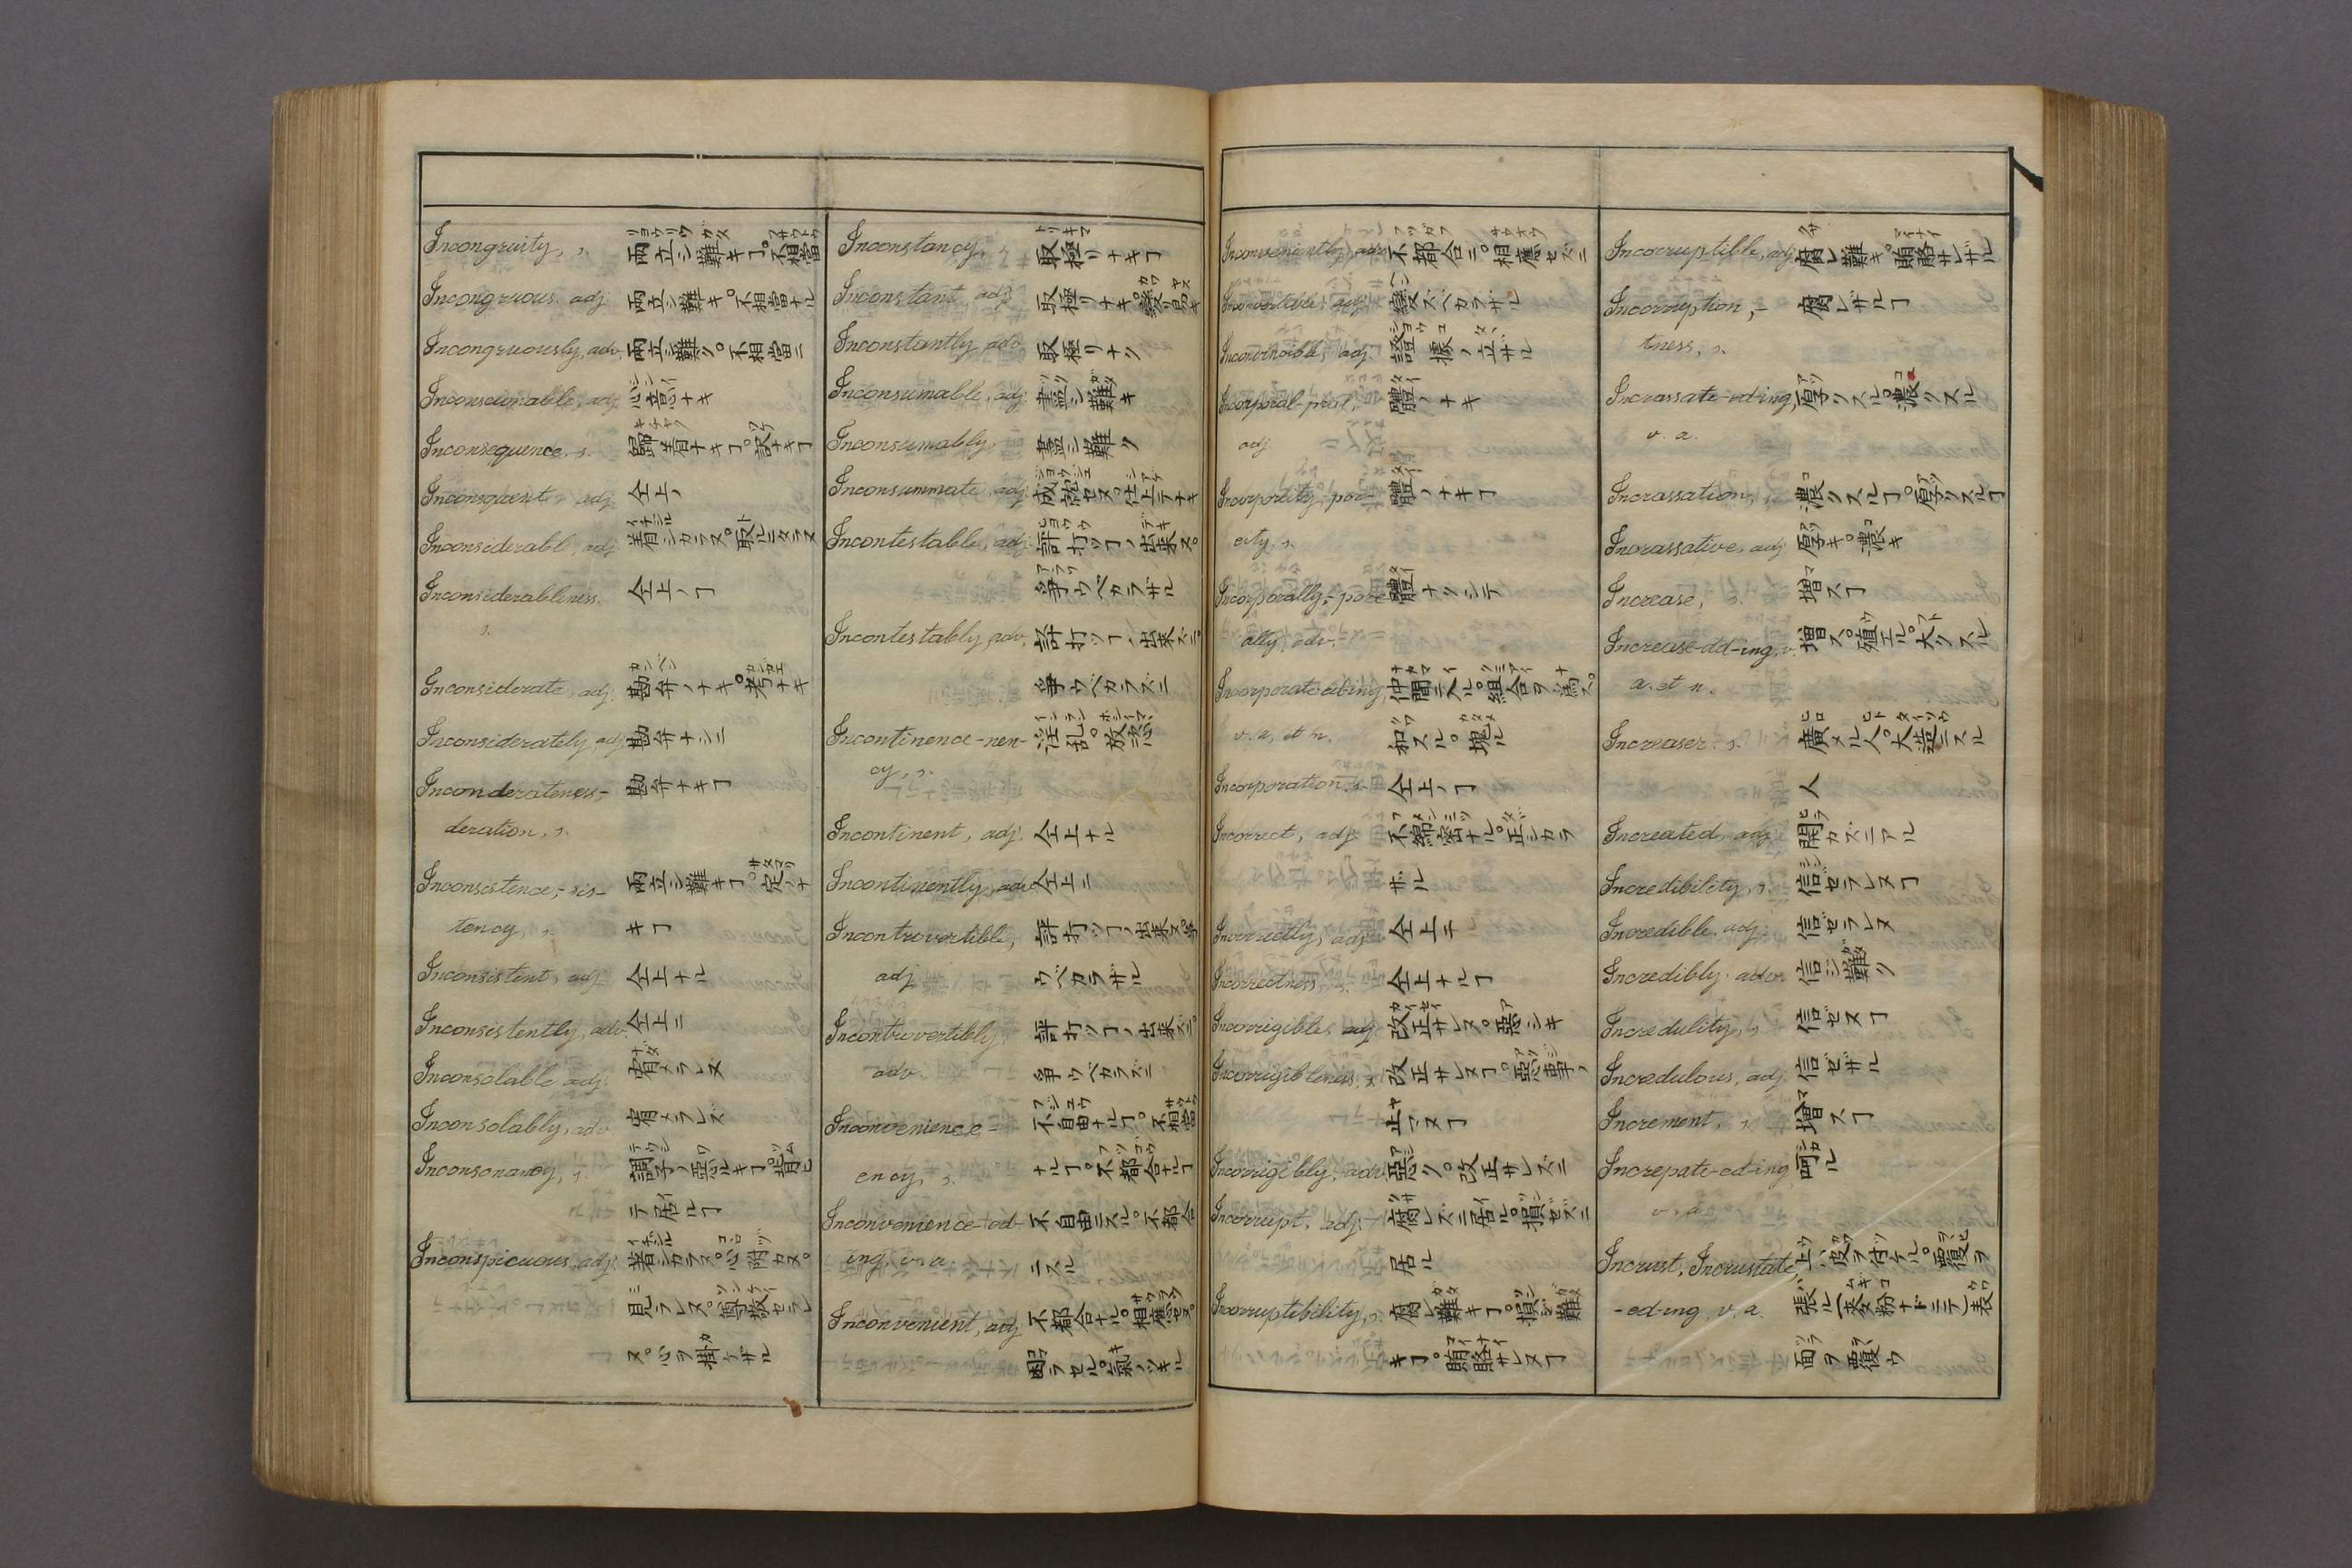 Incongruity, s. 両立シ難キヿ。不相當
Incongruous. adj 両立シ難キ。不相當ナル
Incongruously, adv. 両立シ難ク。不相當ニ
Inconscionable, adj. 心意ナキ
Inconsequence. s. 歸着ナキヿ。訳ナキヿ
Inconsequent, adj 仝上ノ
Inconsiderabl, adj 着シカラヌ。取ルニタラヌ
Inconsiderableness. 仝上ノヿ
s.
Inconsiderate, adj. 勘弁ノナキ。考ナキ
Inconsiderately, adj 勘弁ナシニ
Inconderateness- 勘弁ナキヿ
deration, s.
Inconsistence,-sis- 両立シ難キヿ。定リナ
tency, s. キヿ
Inconsistent, adj 仝上ナル
Inconsistently, adv. 仝上ニ
Inconsolable adj. 宥メラレヌ
Inconsolably, adv 宥メラレズ
Inconsonancy, s. 調子ノ悪ルキヿ。背ヒ
テ居ルヿ
Inconspicuous, adj. 著シカラヌ。心附カヌ。
見ラレヌ。尊敬セラレ
ヌ。心ヲ掛ケザル
Inconstancy, s 取極リナキヿ
Inconstant adj 取極リナキ。変易キ
Inconstantly, adv 取極リナク
Inconsumable, adj. 盡シ難キ
Inconsumably, 盡シ難ク
Inconsummate, adj. 成就セヌ。仕上テナキ
Incontestable, adj. 評打ツヿノ出来ヌ。
争ウベカラザル
Incontestably, adv. 評打ツヿノ出来ズニ。
争ウベカラズニ
Incontinence-nen- 淫乱。放恣
cy, s.
Incontinent, adj. 仝上ナル
Incontinently, adv 仝上ニ
Incontrovertible, 評打ツヿノ出来ヌ。争
adj ウベカラザル
Incontrovertibly, 評打ツヿノ出来ズニ。
adv. 争ウベカラズニ
Inconvenience- 不自由ナルヿ。不相當
ency, s. ナルヿ。不都合ナルヿ
Inconvenience-ed- 不自由ニスル。不都合
ing, v. a. ニスル
Inconvenient, adj 不都合ナル。相應セヌ。
困ラセル。氣ノツキル
Inconveniently, adv 不都合ニ。相應セズニ
Inconvertible, adj. 變ズベカラザル
Inconvincible, adj. 證據ノ立ザル
Incorporal-real, 體ノナキ
adj
Incorporality,-por- 體ノナキヿ
eity, s.
Incorporally,-pore 體ナクシテ
ally, adv.
Incorporate-ed-ing, 仲間ニ入ル。組合ヲ為ス。
v. a. et n. 和スル。塊ル
Incorporation, s. 仝上ノヿ
Incorrect, adj. 不綿密ナル。正シカラ
ザル
Incorrectly, adj 仝上ニ
Incorrectness s. 仝上ナルヿ
Incorrigible, adj. 改正サレヌ。悪シキ
Incorrigibleness, s 改正サレヌヿ。悪事ノ
止マヌヿ
Incorrigibly, adv 悪ク。改正サレズニ
Incorrupt, adj. 腐レズニ居ル。損ゼズニ
居ル
Incorruptibility, s. 腐レ難キヿ。損ジ難
キヿ。賄賂サレヌヿ
Incorruptible, adj 腐レ難キ。賄賂サレザル
Incorruption,- 腐レザルヿ
tness, s.
Incrassate-ed-ing, 厚クスル。濃クスル
v. a.
Incrassation, s. 濃クスルヿ。厚クスルヿ
Incrassative, adj 厚キ。濃キ
Increase, s. 増スヿ
Increase-dd-ing, v. 増ス。殖エル。大クスル
a. et n.
Increaser. s. 廣メル人。大造ニスル
人
Increated, adj 開カズニアル
Incredibility, s. 信ゼラレヌヿ
Incredible. adj. 信ゼラレヌ
Incredibly. adv 信ジ難ク
Incredulity, s 信ゼヌヿ
Incredulous, adj. 信ゼザル
Increment, s. 増スヿ
Increpate-ed-ing 呵ル
v. a
Incrust, Incrustate, 上ハ皮ヲ付ケル。覆ヒヲ
-ed-ing, v. a 張ル(麥粉ナドニテ)表
面ヲ覆ウ